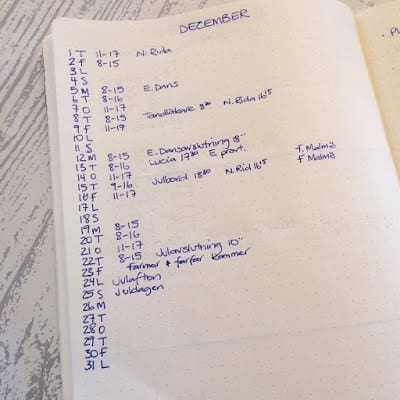 DECEMBER
1 T 11-17 N. Rida
2 F 8-15
3 L
4 S
5 M 8-15 E. Dans
6 T 8-16
7 O 11-17
8 T 8-15 Tandläkare N. Rida 16
9 F 11-17
10 L
11 S
12 M 8-15 E. Dansavslutning 18
13 T 8-16 Lucia E F. Malmö
14 O 11-17 F Malmö
15 T 9-16 Julbord N. Rid 16
16 F 11-17
17 L
18 S
19 M 8-15
20 T 8-16
21 O 11-17
22 T 8-15 Julavslutning 10
23 F farmor + farfar kommer
24 L Julafton
25 S Juldagen
26 M
27 T
28 O
29 T
30 F
31 L